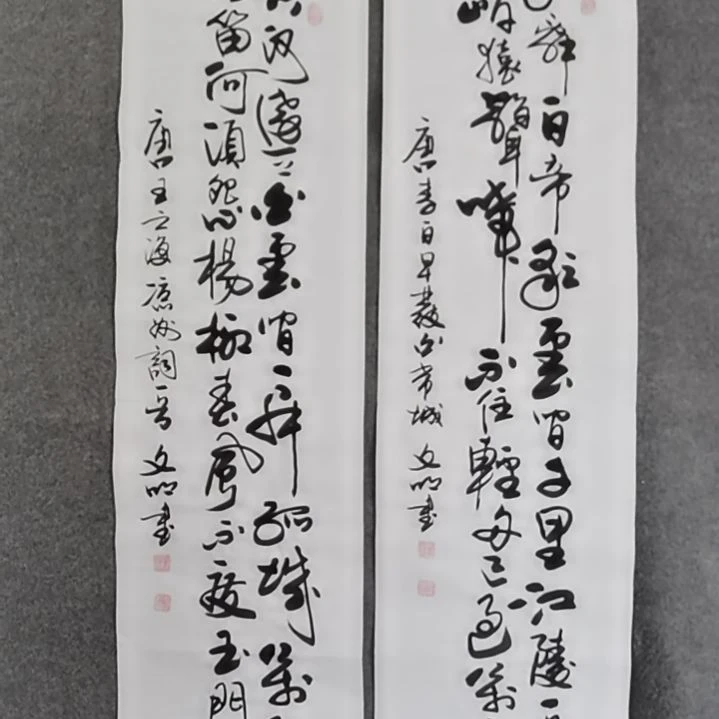 辭白帝彩雲間千里江陵一
岸猿聲啼不住輕舟已過萬
唐李白早發白帝城 文明書
河遠上白雲間一片孤城萬
笛何須怨楊柳春風不度玉門
唐王之渙凉州詞一首 文明書